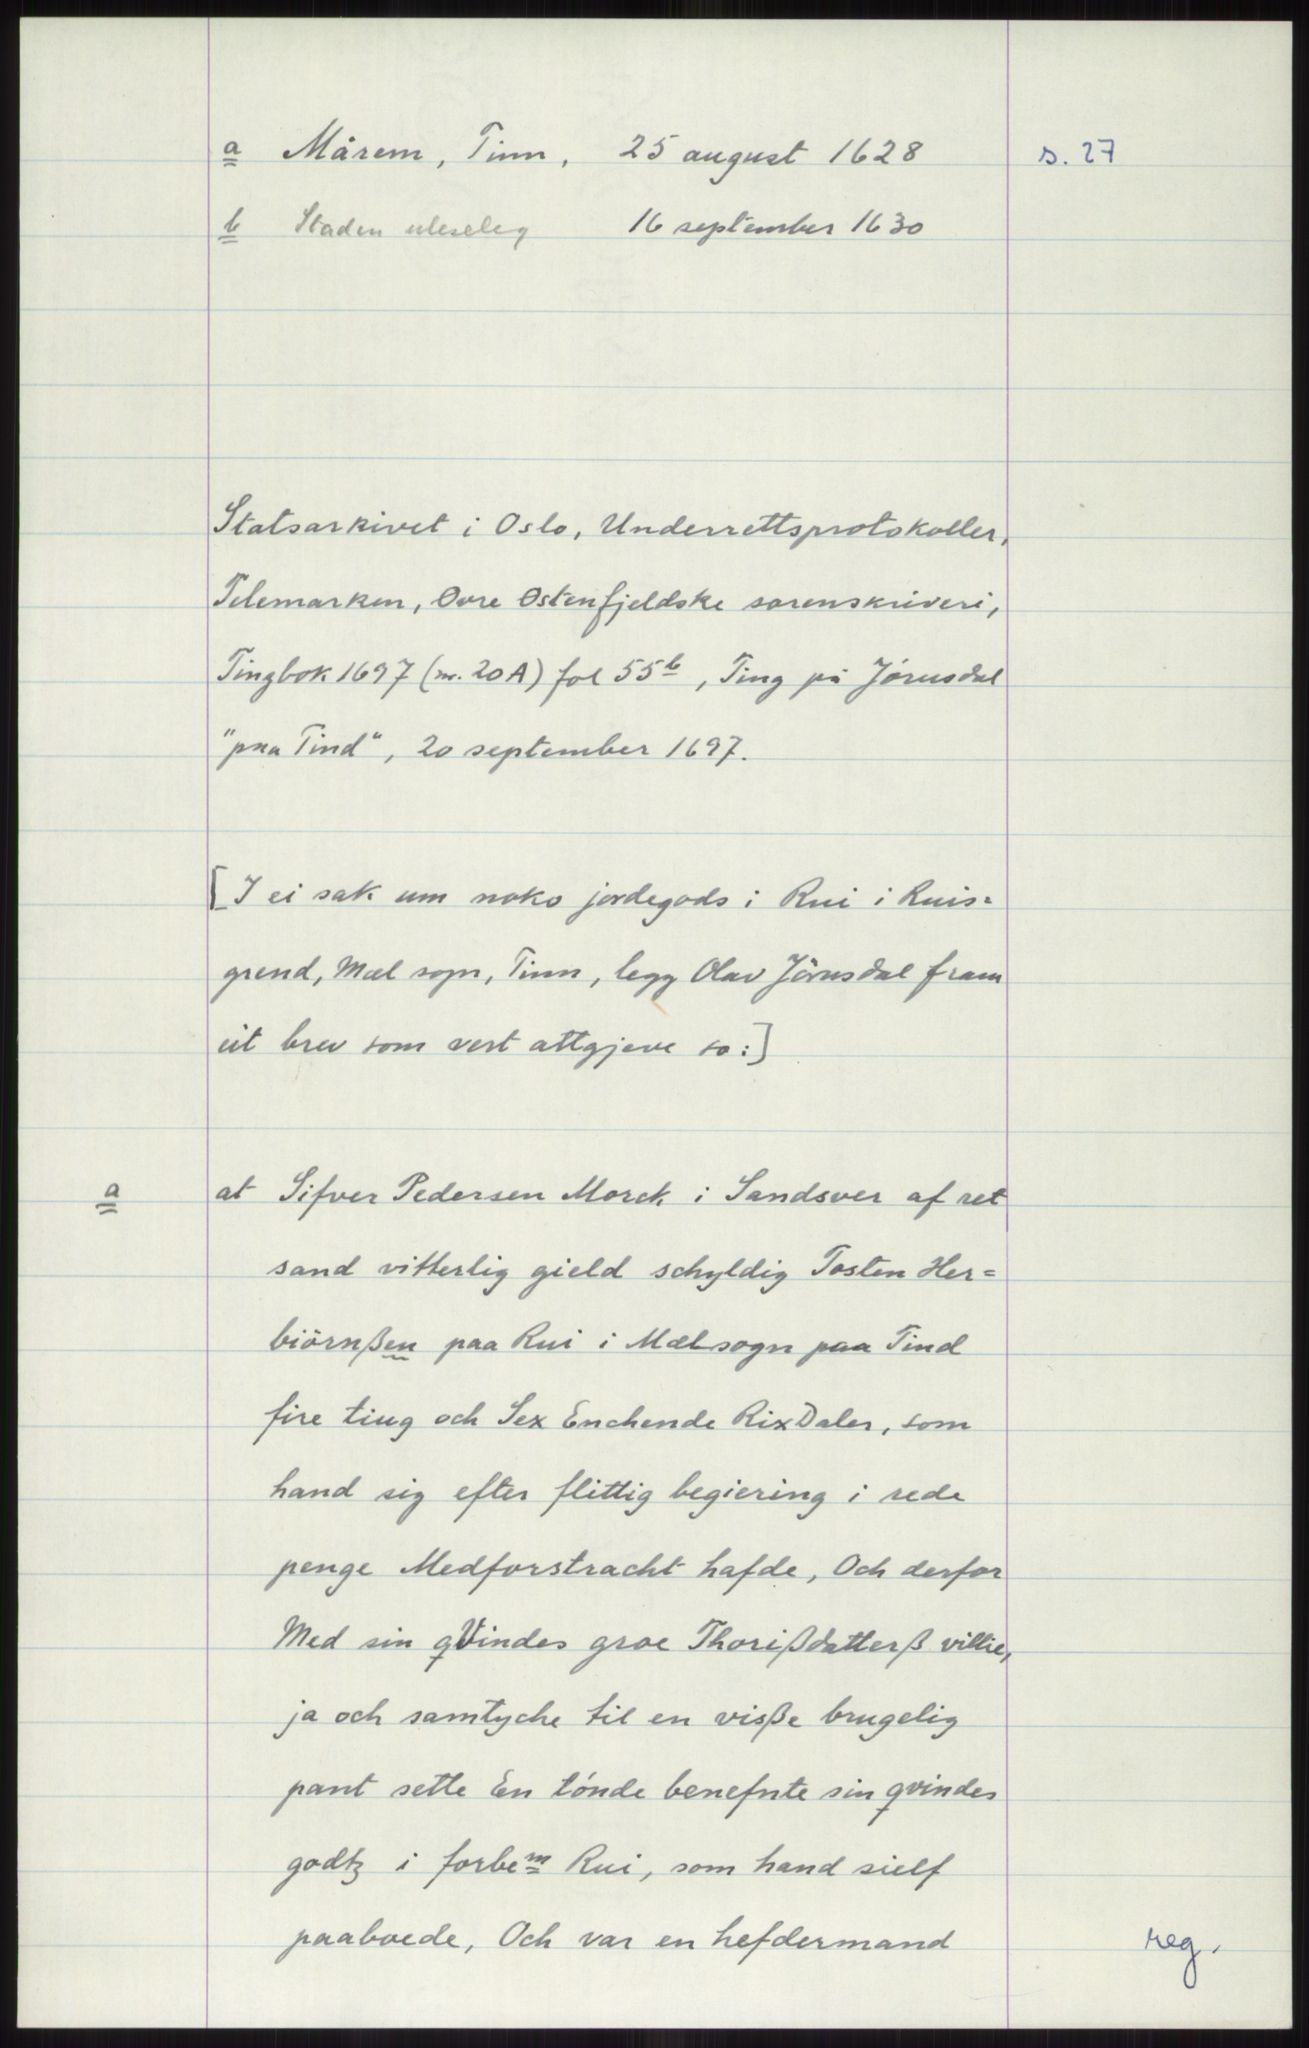 a Mårem, Tinn, 25 august 1628 s. 27
b Staden uleseleg 16 september 1630
Statsarkivet i Oslo, Underrettsprotokoller,
Telemarken, Øvre Østenfjeldske sorenskriveri,
Tingbok 1697 (nr. 20A) fol 55b, Ting på Jørusdal
"paa Tind", 20 september 1697.
[I ei sak um noko jordegods i Rui i Ruis=
grend, Mæl sogn, Tinn, legg Olav Jørusdal fram
eit brev som vert attgjeve so:]
a at Sifver Pedersen Morck i Sandsver af ret
sand vitterlig gield schyldig Tosten Her=
biörnßen paa Rui i Mælsogn paa Tind
fire tiug och Sex Enchende RixDaler, som
hand sig efter flittig begiering i rede
penge Medforstracht hafde, Och derfor
Med sin qVindes groe Thorißdatterß villie,
ja och samtyche til en visße brugelig
pant sette En tónde benefnte sin qvindes
godtz i forbem Rui, som hand sielf
paaboede, Och var en hefdermand
reg.